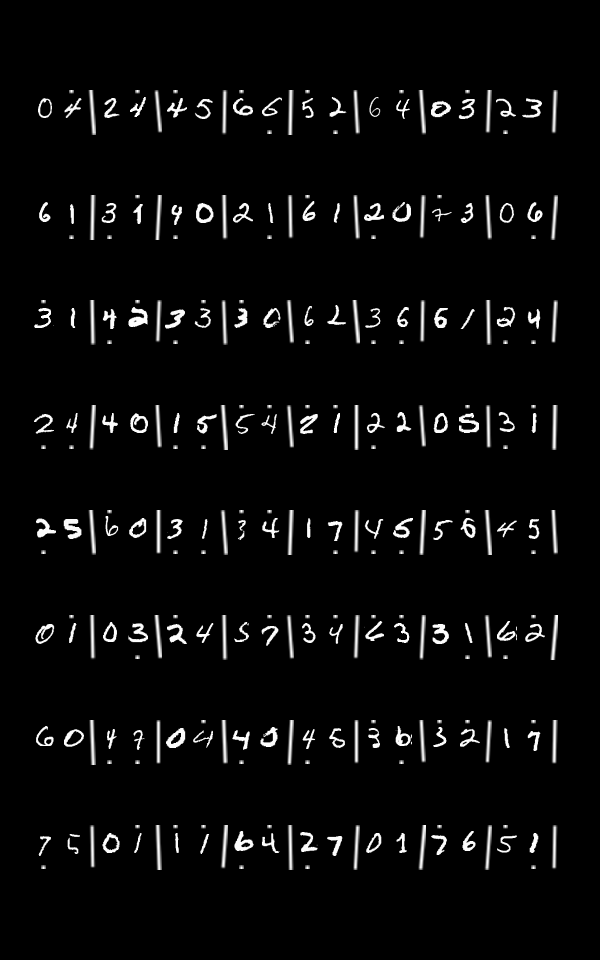 0 4 | 2 4 | 4 5 | 6 6 | 5 2 | 6 4 | 0 3 | 2 3 |
6 1 | 3 1 | 4 0 | 2 1 | 6 1 | 2 0 | 7 3 | 0 6 |
3 1 | 4 2 | 3 3 | 3 0 | 6 2 | 3 6 | 6 1 | 2 4 |
2 4 | 4 0 | 1 5 | 5 4 | 2 1 | 2 2 | 0 5 | 3 1 |
2 5 | 6 0 | 3 1 | 3 4 | 1 7 | 4 5 | 5 6 | 4 5 |
0 1 | 0 3 | 2 4 | 5 7 | 3 4 | 6 3 | 3 1 | 6 2 |
6 0 | 4 7 | 0 4 | 4 0 | 4 5 | 3 6 | 3 2 | 1 7 |
7 5 | 0 1 | 1 1 | 6 4 | 2 7 | 0 1 | 7 6 | 5 1 |